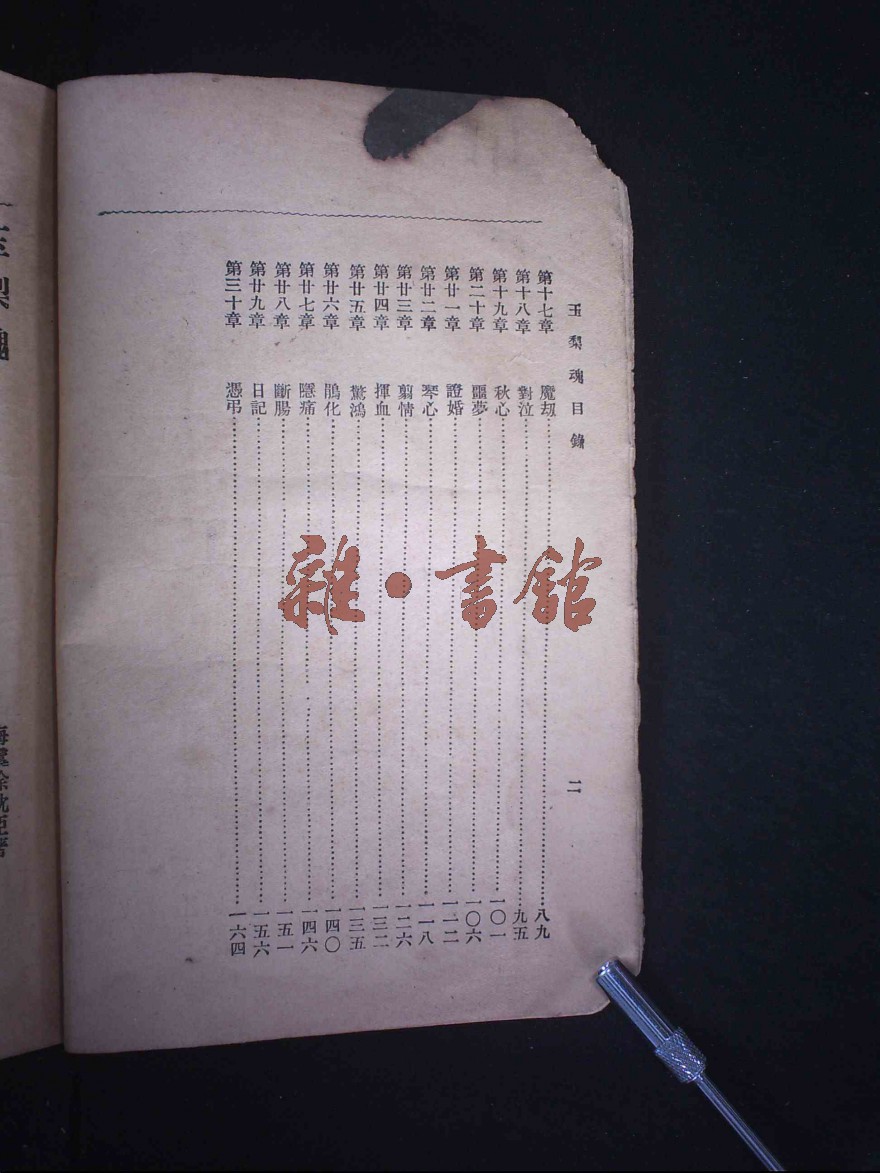 玉梨魂目錄
二
第十七章 魔劫……八九
第十八章 對泣……九五
第十九章 秋心……一〇一
第二十章 噩夢……一〇六
第廿一章 證婚……一一二
第廿二章 琴心……一一八
第廿三章 剪情……一二六
第廿四章 揮血……一三二
第廿五章 驚鴻……一三五
第廿六章 鵑化……一四〇
第廿七章 隱痛……一四六
第廿八章 斷腸……一五一
第廿九章 日記……一五六
第三十章 憑弔……一六四
雜·書館
梨魂